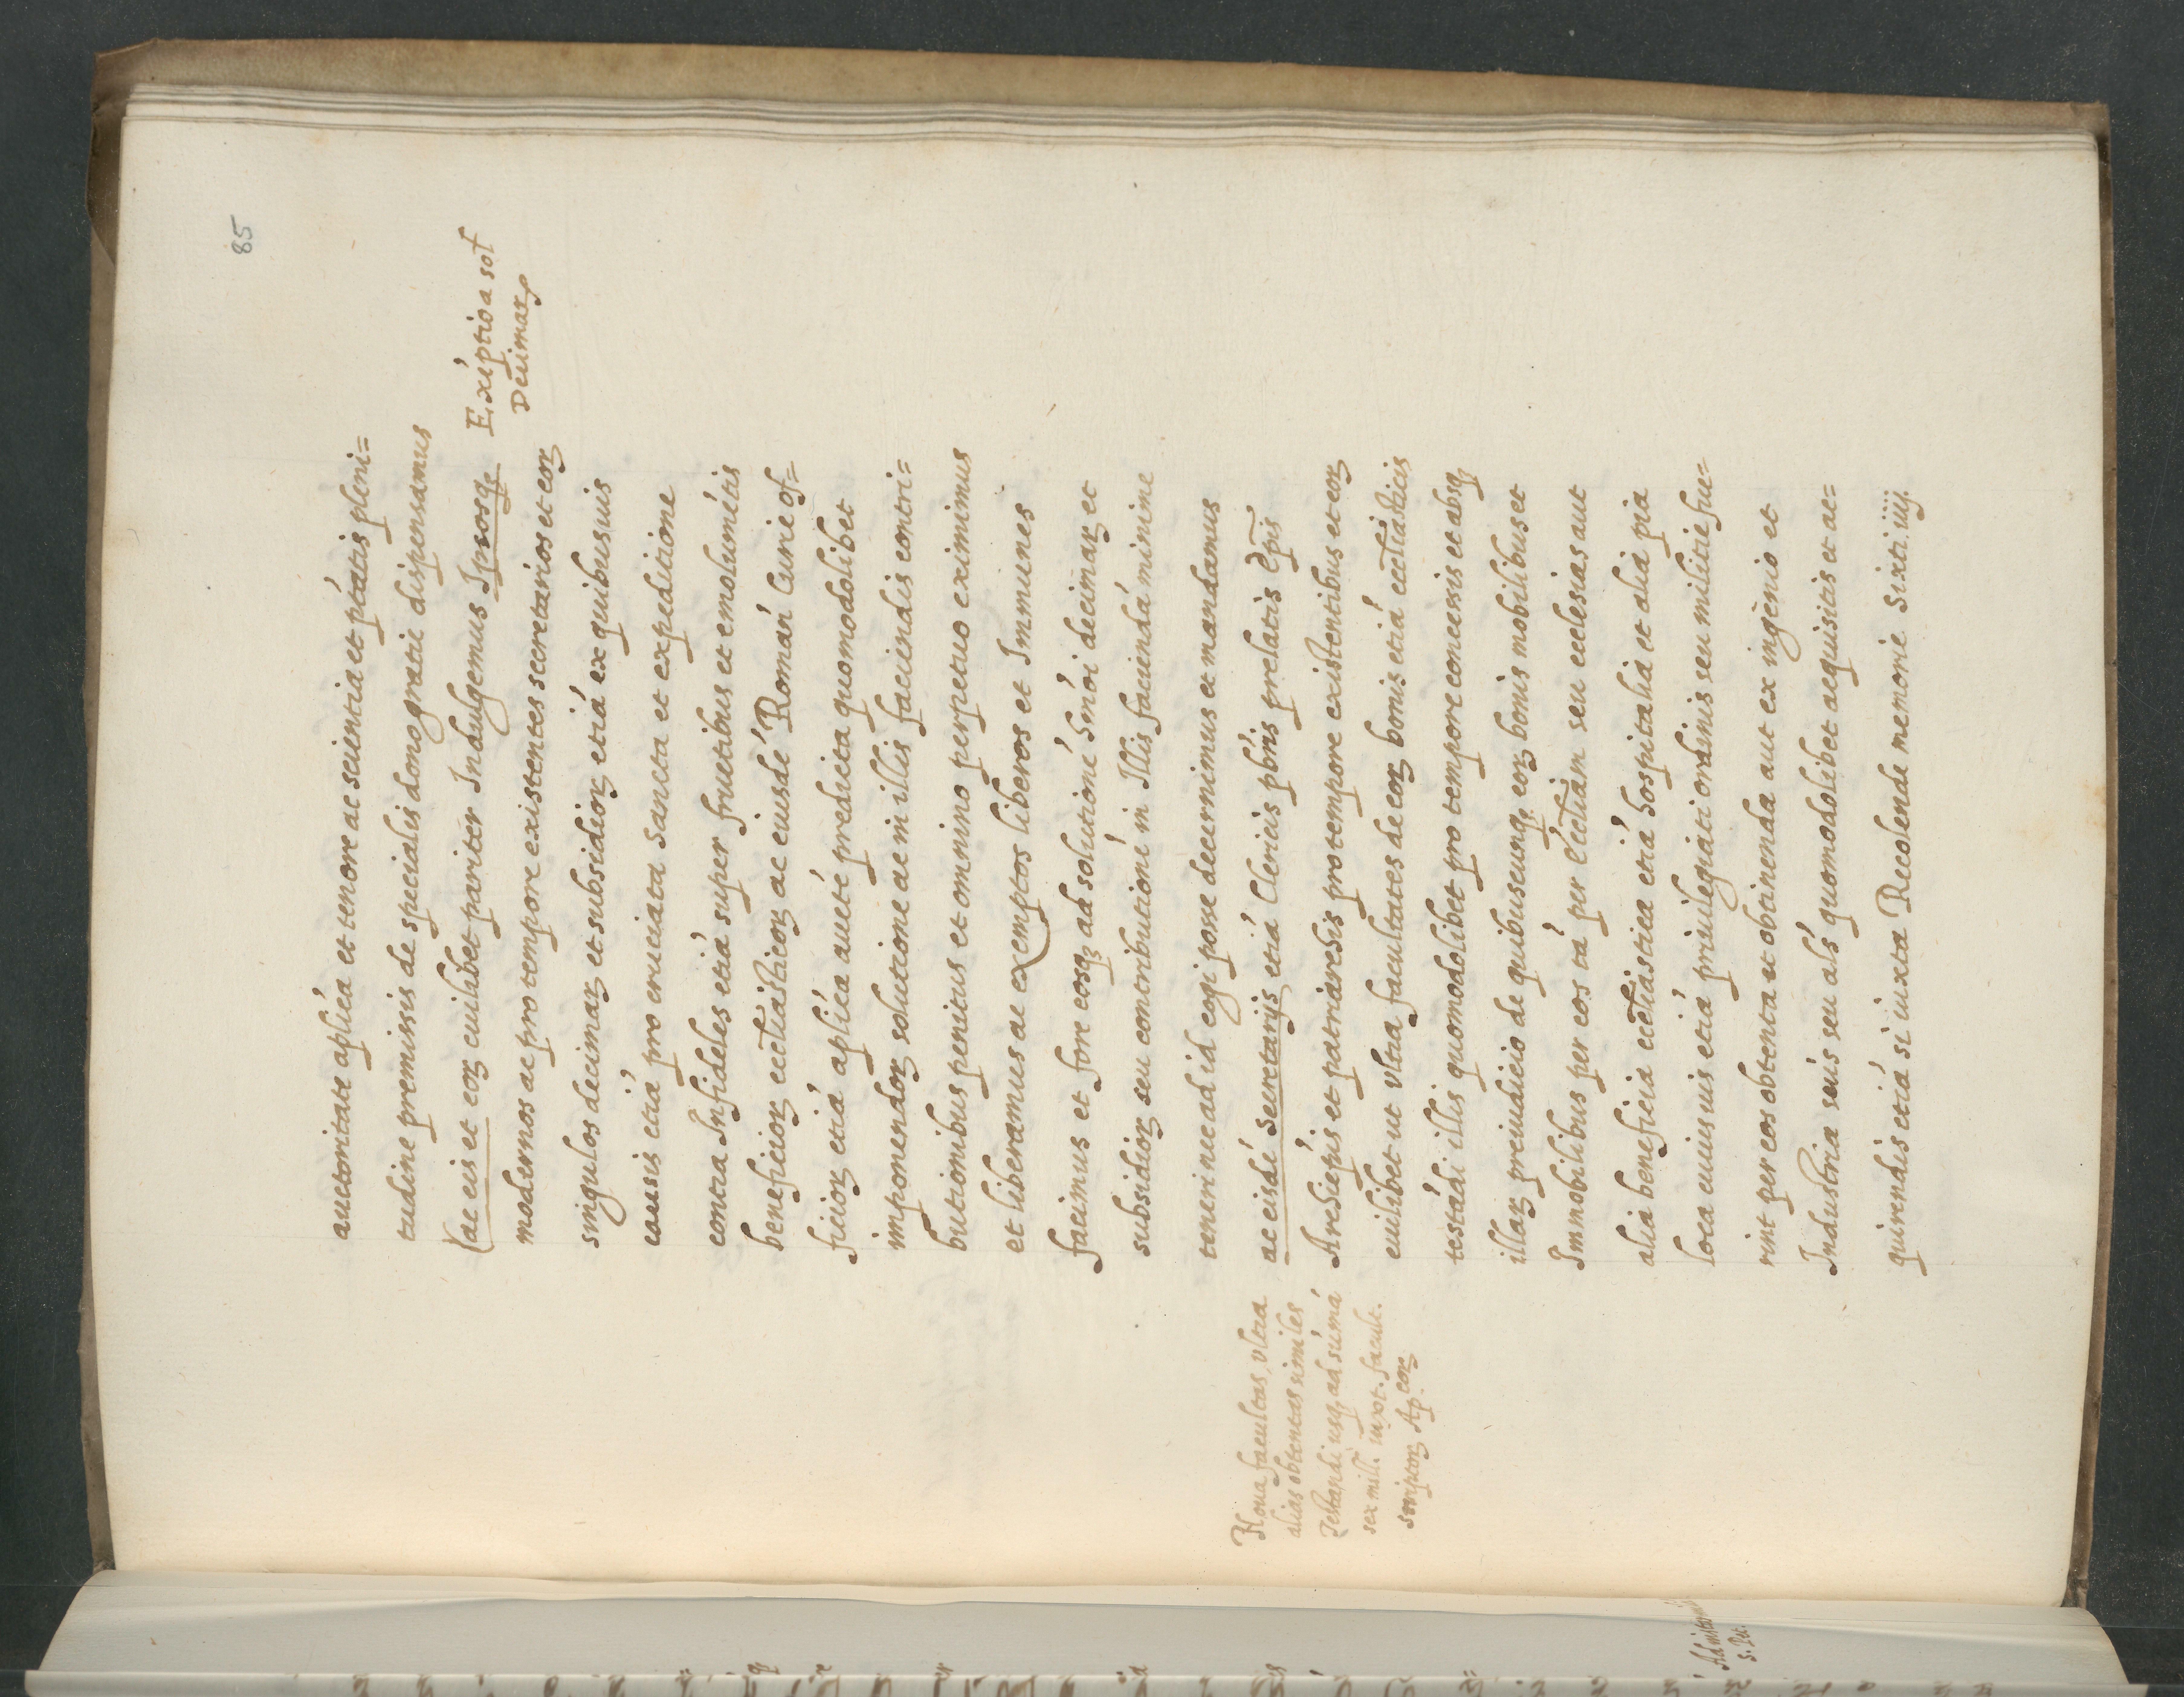 85
auctoritate aplica et tenore ac scientia et ptatis pleni=
tudine premissis de specialis dono gratie dispensamus
ac eis et eorꝝ cuilibet pariter Indulgemus Ipsosqꝫ
Exéptio a sol
Decimarꝝ
modernos ac pro tempore existentes secretarios et eorꝝ
singulos decimarꝝ et subsidiorꝝ etiá ex quibusuis
causis etiá pro cruciata Sancta et expeditione
contra Infideles etiá super fructibus et emoluméntis
beneficiorꝝ eccliasticorꝝ ac eiusdé Román Curie of=
ficiorꝝ etiá aplica aucté predicta quomodolibet
imponendorꝝ solutione ac in illis faciendis contri=
butionibus penitus et omnino perpetuo eximimus
et liberamus ac exemptos liberos et Immunes
facimus et fore eosqꝫ ad solutioné hmói decimarꝝ et
subsidiorꝝ seu contributioné in Illis faciendá minime
teneri nec ad id cogi posse decernimus et mandamus
Noua facultas, vltra
alias obtentas similes
Testandi usqꝫ ad sumá
sex mill. iuxt. facult.
scriptorꝝ Ap. eorꝝ
ac eisdé Secretarijs etiá Clericis pbris prelatis Epis
Archiepis et patriarchis pro tempore existentibus et eorꝝ
cuilibet ut vltra facultates de eorꝝ bonis etiá eccliasticis
testádi illis quomodolibet pro tempore concessis et absqꝫ
illarꝝ preiudicio de quibuscunqꝫ eorꝝ bonis mobilibus et
Immobilibus per eos tá per Eccliam seu ecclesias aut
alia beneficia eccliastica etiá hospitalia et alia pia
loca cuiusuis etiá priuilegiati ordinis seu militie fue=
rint per eos obtenta et obtinenda aut ex ingenio et
Industria suis seu als quomodolibet acquisitis et ac=
quirendis etiá si iuxta Recolende memorie Sixti iiij.